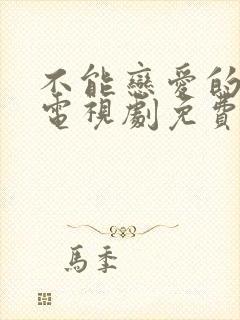 不能戀愛的
電視劇免費
馬季